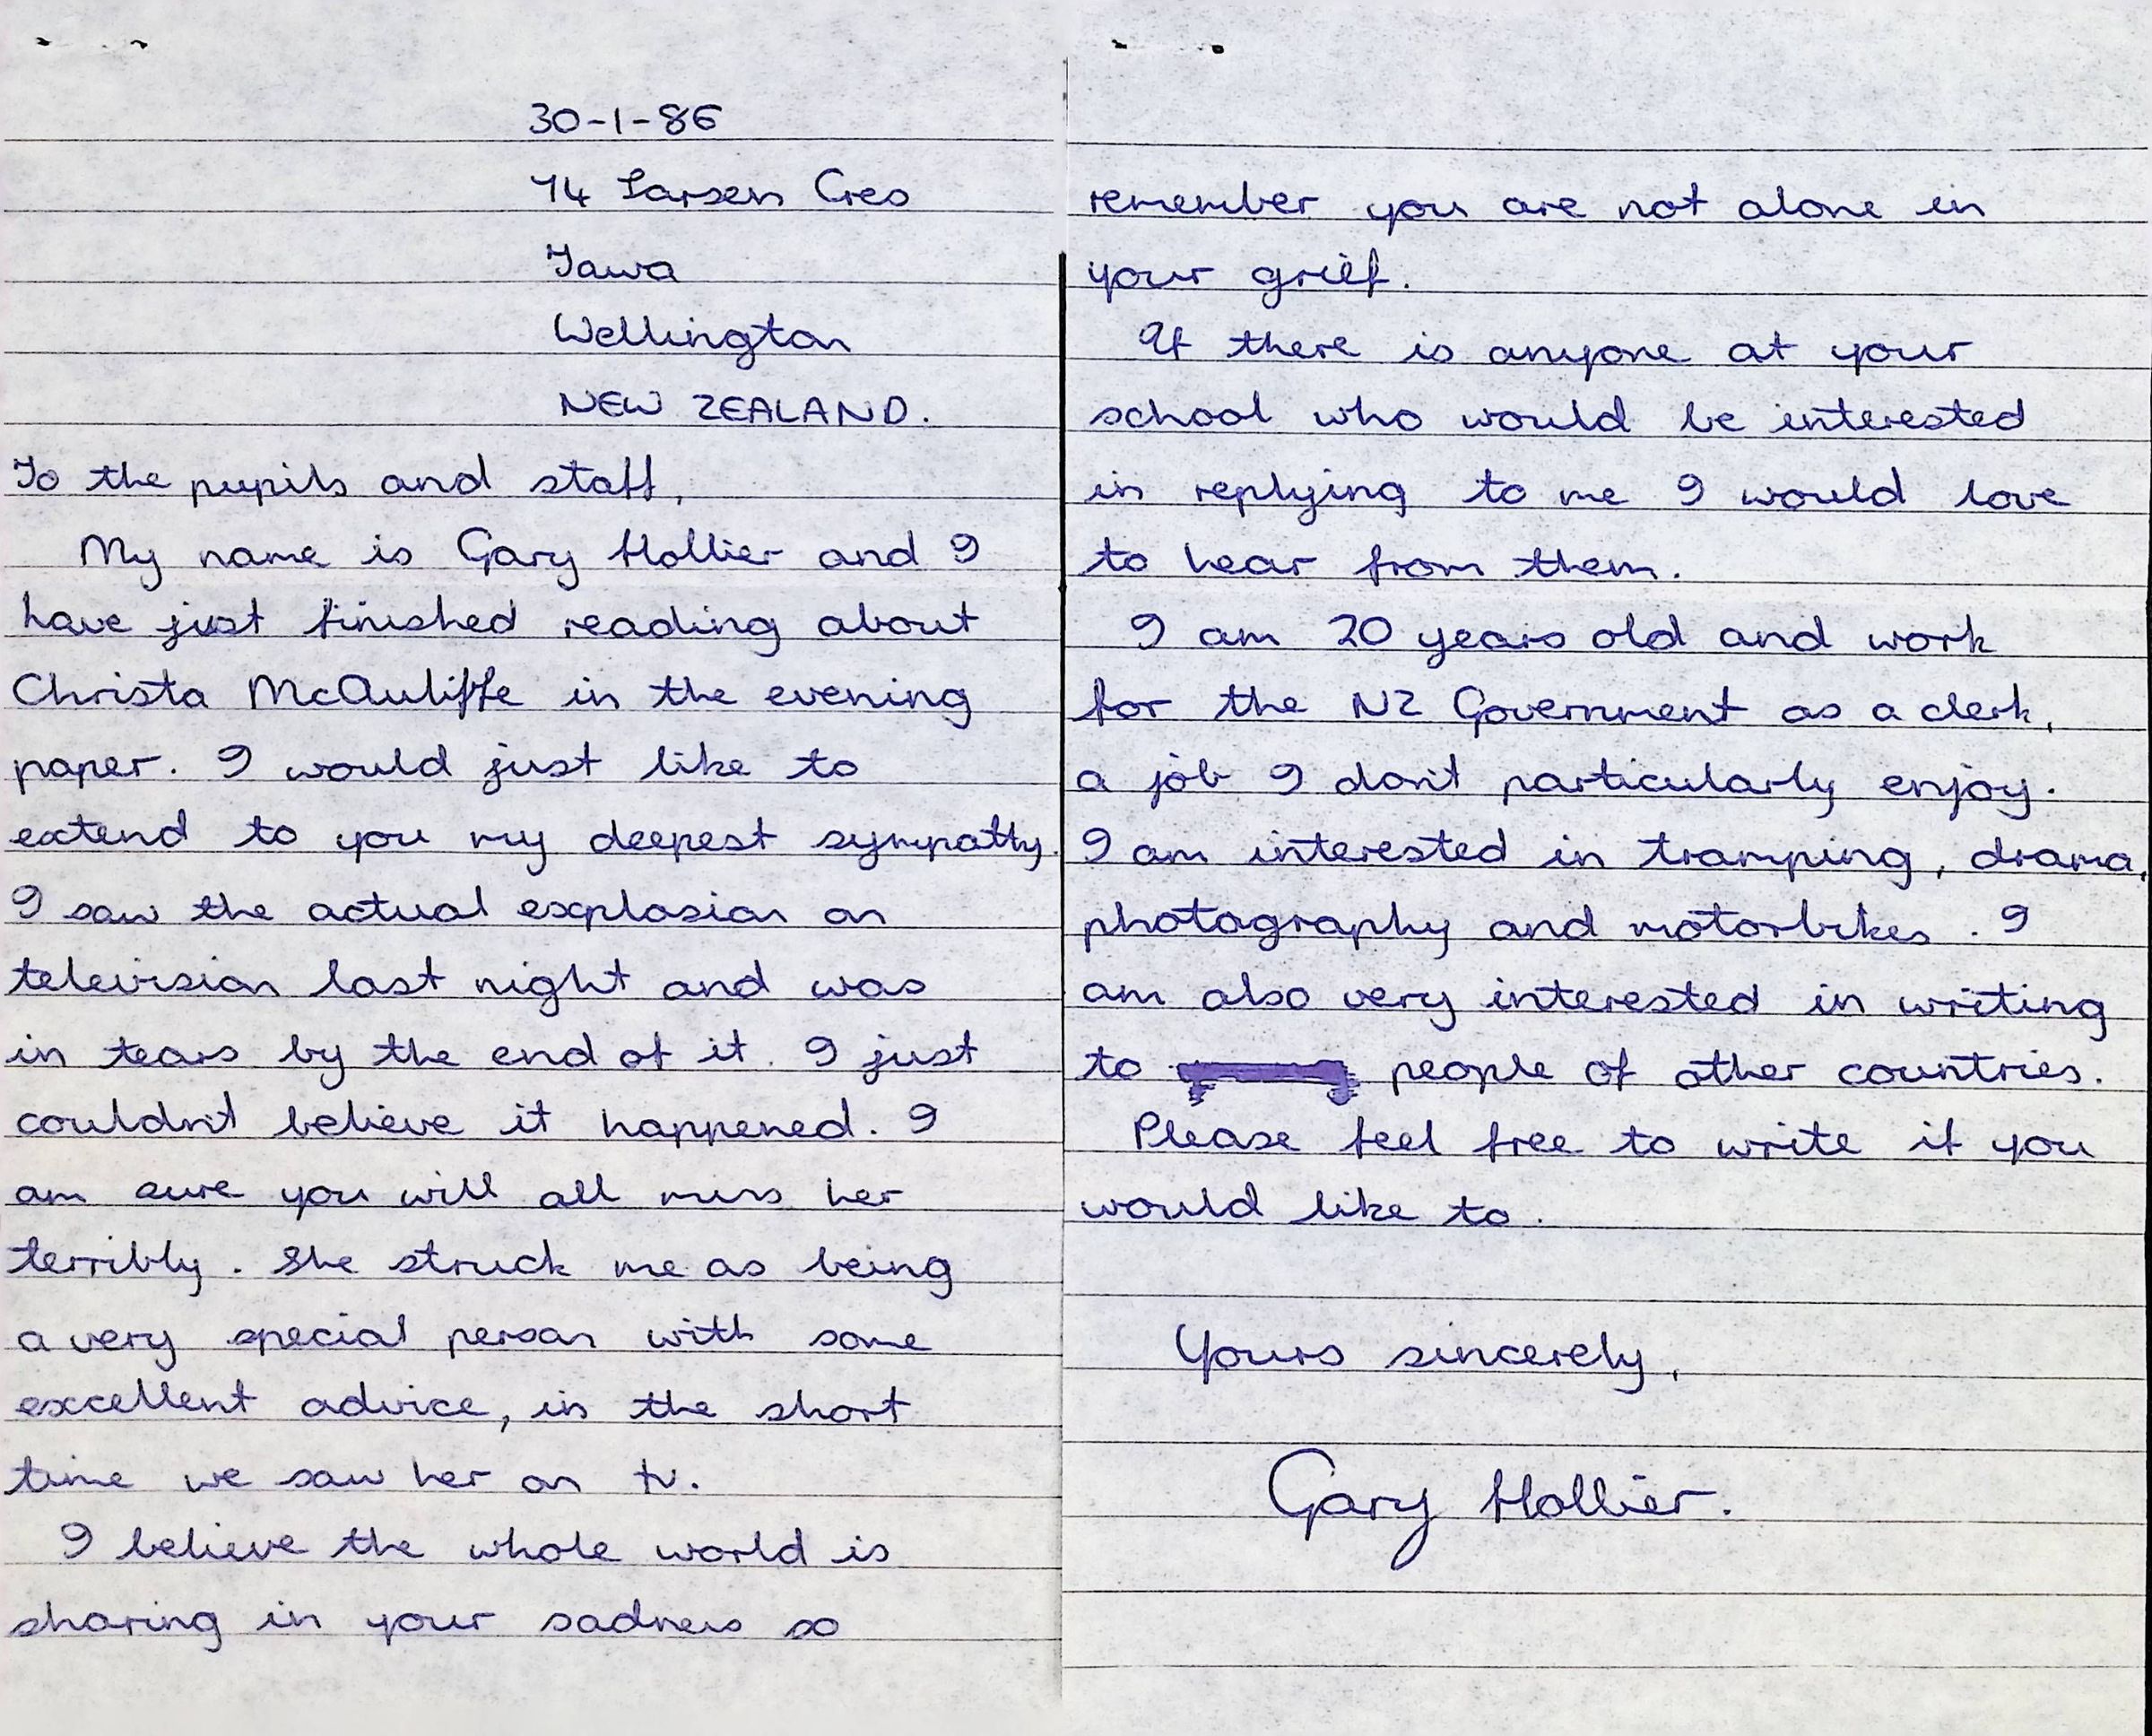 30-1-86
74 Larsen Cres
Tawa
Wellington
NEW ZEALAND.
To the pupils and staff,
My name is Gary Hollier and I
have just finished reading about
Christa McAuliffe in the evening
paper. I would just like to
extend to you my deepest sympathy.
I saw the actual explosion on
television last night and was
in tears by the end of it. I just
couldn't believe it happened. I
am sure you will all miss her
terribly. She struck me as being
a very special person with some
excellent advice, in the short
time we saw her on tv.
I believe the whole world is
sharing in your sadness so
remember you are not alone in
your grief.
If there is anyone at your
school who would be interested
in replying to me I would love
to hear from them.
I am 20 years old and work
for the NZ Government as a clerk,
a job I don't particularly enjoy.
I am interested in tramping, drama,
photography and motorbikes. I
am also very interested in writing
to people of other countries.
Please feel free to write if you
would like to.
Yours sincerely,
Gary Hollier.